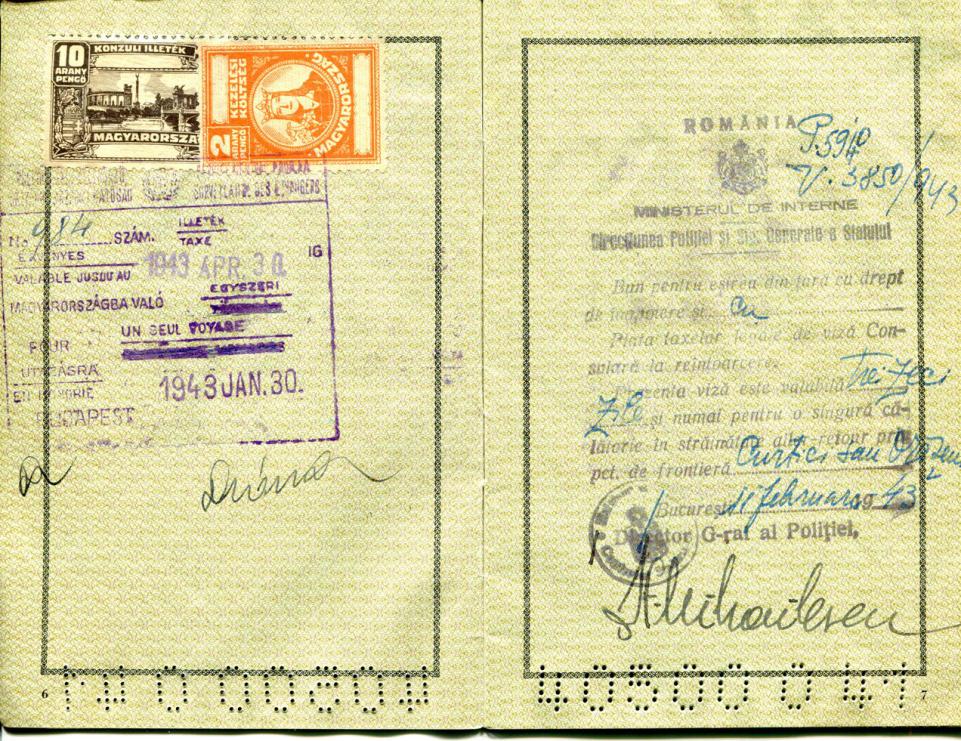 10
ARANY
PENGŐ
KONZULI ILLETÉK
MAGYARORSZA
2
ARANY
PENGŐ
KEZELÉSI
KÖLTSÉG
MAGYARORSZÁG
SURVEILLANCE DES ÉTRANGERS
No 984 SZÁM. ILLETÉK
TAXE
VALABLE JUSQU'AU 1943 APR. 30.
MAGYARORSZÁGBA VALÓ EGYSZERI
POUR UN SEUL VOYAGE
UTAZÁSRA
EN HONGRIE 1943 JAN. 30.
BUDAPEST
6
ROMÂNIA
V. 3850/943
MINISTERUL DE INTERNE
Direcțiunea Poliției și Sig. Generale a Statului
Bun pentru eșirea din țară cu drept
de înapoiere și cu
Plata taxelor legale de viză Con-
sulară la reîntoarcere.
Prezenta viză este valabilă trei zeci
zile și numai pentru o singură că-
lătorie în străinătate aller-retour prin
pct. de frontieră Curtici sau
București 11 februarie 1943
Director G-ral al Poliției,
40500 0 41
7